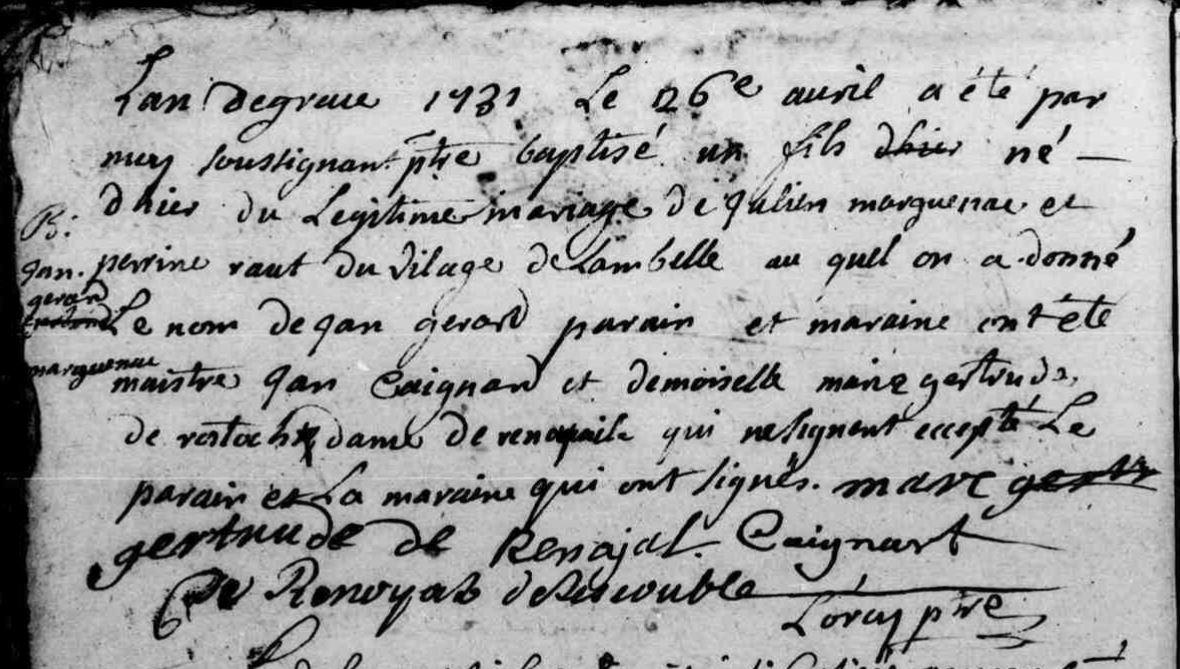 Lan degrace 1731 Le 26e auril a été par
moy soussignant ptre baptisé un fils dhier né -
dhier du Legitime mariage de Julien marguenae et
B:
Jan. perrine raut du vilage de Lambelle au quel on a donné
gerard
Le nom de Jan gerard parain et maraine ont été
marguenae
maistre Jan Caignard et demoiselle marie gertrude
de rostoch dame de qui ne signent eccepté Le
parain et La maraine qui ont signés. marc gertr
gertrude de Renajal. Caignart
de Renoyal
Lorcy ptre